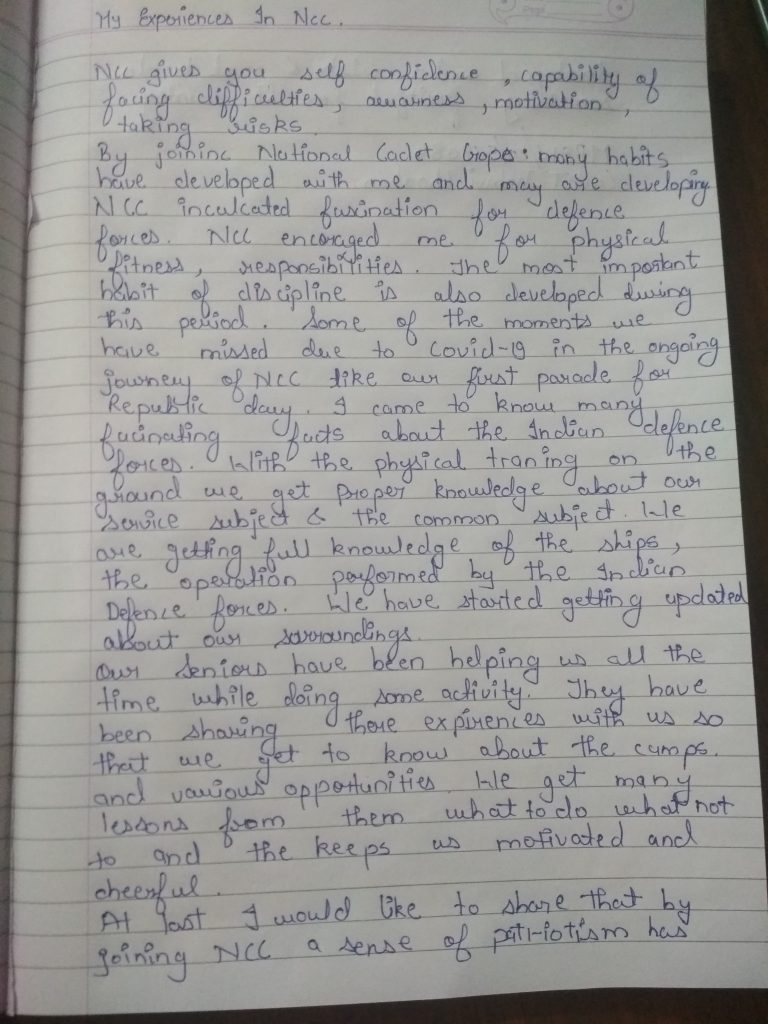 My Experiences In Ncc.
NCC gives you self confidence, capability of
facing difficulties, awarness, motivation,
taking risks.
By joininc National Cadet Crops: many habits
have developed with me and may are developing
NCC inculcated fascination for defence
forces. NCC encoraged me for physical
fitness, responsibilities. The most important
habit of discipline is also developed during
this period. Some of the moments we
have missed due to Covid-19 in the ongoing
journey of NCC like our first parade for
Republic day. I came to know many
facinating facts about the Indian defence
forces. With the physical traning on the
ground we get proper knowledge about our
service subject & the common subject. We
are getting full knowledge of the ships,
the operation performed by the Indian
Defence forces. We have started getting updated
about our sarroundings.
Our seniors have been helping us all the
time while doing some activity. They have
been sharing there expirences with us so
that we get to know about the camps.
and various opportunities. We get many
lessons from them what to do what not
to and the keeps us motivated and
cheerful.
At last I would like to share that by
joining NCC a sense of patriotism has